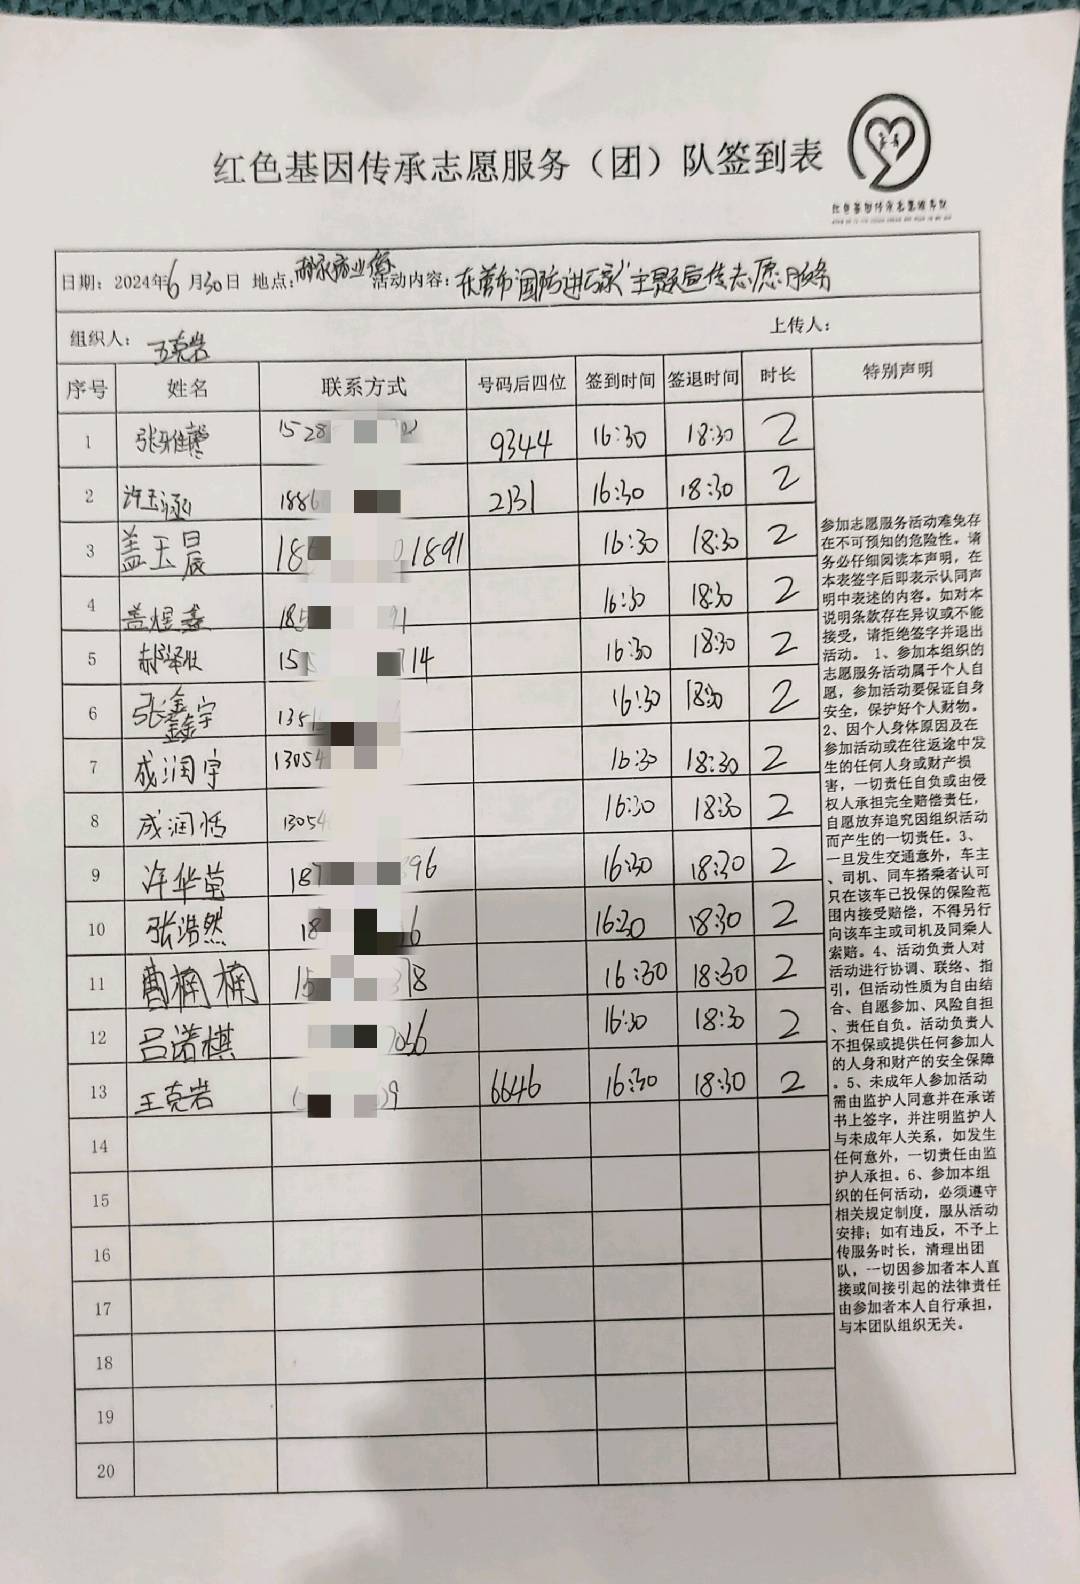 红色基因传承志愿服务（团）队签到表
红色基因传承志愿服务队
日期：2024年6月30日 地点： 活动内容： 主题宣传志愿服务
组织人：王克岩 上传人：
序号 姓名 联系方式 号码后四位 签到时间 签退时间 时长 特别声明
1 张雅馨 1528 9344 16:30 18:30 2
2 许玉涵 1886 2131 16:30 18:30 2
3 盖玉晨 18 1891 16:30 18:30 2
4 盖煜鑫 185 91 16:30 18:30 2
5 郝泽牧 15 714 16:30 18:30 2
6 张鑫宇 1351 16:30 18:30 2
7 成润宇 13054 16:30 18:30 2
8 成润恬 13054 16:30 18:30 2
9 许华莹 187 396 16:30 18:30 2
10 张浩然 18 16:30 18:30 2
11 曹楠楠 15 378 16:30 18:30 2
12 吕诺棋 7036 16:30 18:30 2
13 王克岩 1 09 6646 16:30 18:30 2
14
15
16
17
18
19
20
参加志愿服务活动难免存
在不可预知的危险性。请
务必仔细阅读本声明，在
本表签字后即表示认同声
明中表述的内容。如对本
说明条款存在异议或不能
接受，请拒绝签字并退出
活动。1、参加本组织的
志愿服务活动属于个人自
愿，参加活动要保证自身
安全，保护好个人财物。
2、因个人身体原因及在
参加活动或在往返途中发
生的任何人身或财产损
害，一切责任自负或由侵
权人承担完全赔偿责任，
自愿放弃追究因组织活动
而产生的一切责任。3、
一旦发生交通意外，车主
、司机、同车搭乘者认可
只在该车已投保的保险范
围内接受赔偿，不得另行
向该车主或司机及同乘人
索赔。4、活动负责人对
活动进行协调、联络、指
引，但活动性质为自由结
合、自愿参加、风险自担
、责任自负。活动负责人
不担保或提供任何参加人
的人身和财产的安全保障
。5、未成年人参加活动
需由监护人同意并在承诺
书上签字，并注明监护人
与未成年人关系，如发生
任何意外，一切责任由监
护人承担。6、参加本组
织的任何活动，必须遵守
相关规定制度，服从活动
安排；如有违反，不予上
传服务时长，清理出团
队，一切因参加者本人直
接或间接引起的法律责任
由参加者本人自行承担，
与本团队组织无关。